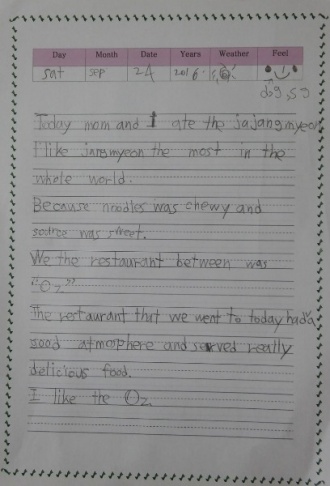 Day Month Date Years Weather Feel
sat sep 24 2016.
Today mom and I ate the jajangmyeon
I like jangmyeon the most in the
whole world.
Because noodles was chewy and
was street.
We the restaurant between was
"Oz"
The restaurant that we went to today had a
good atmosphere and served really
delicious food.
I like the Oz.